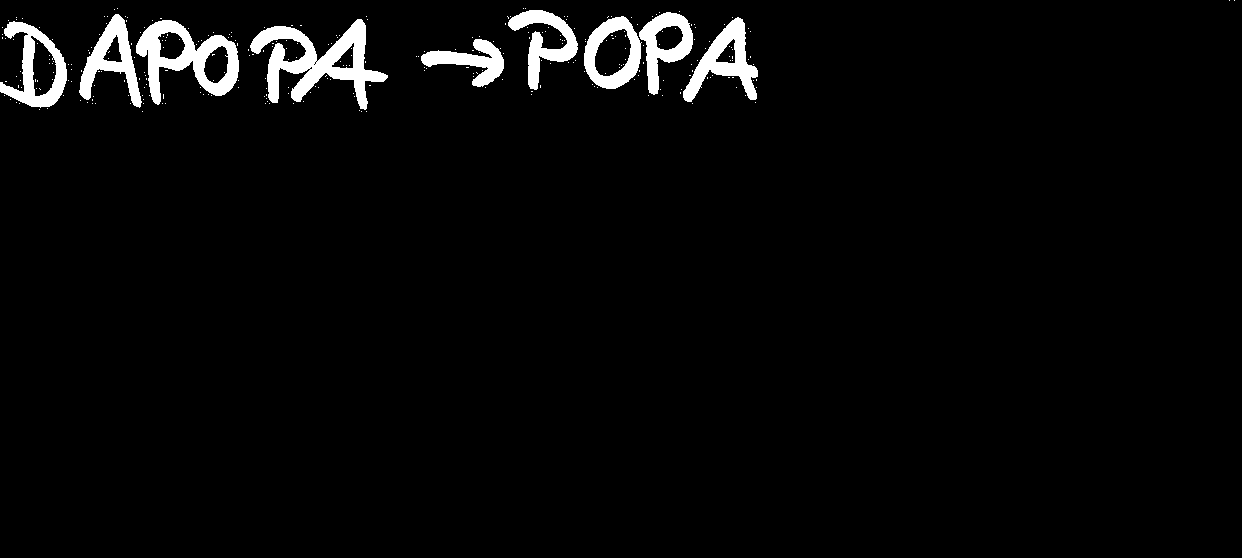 DAPOPA → POPA